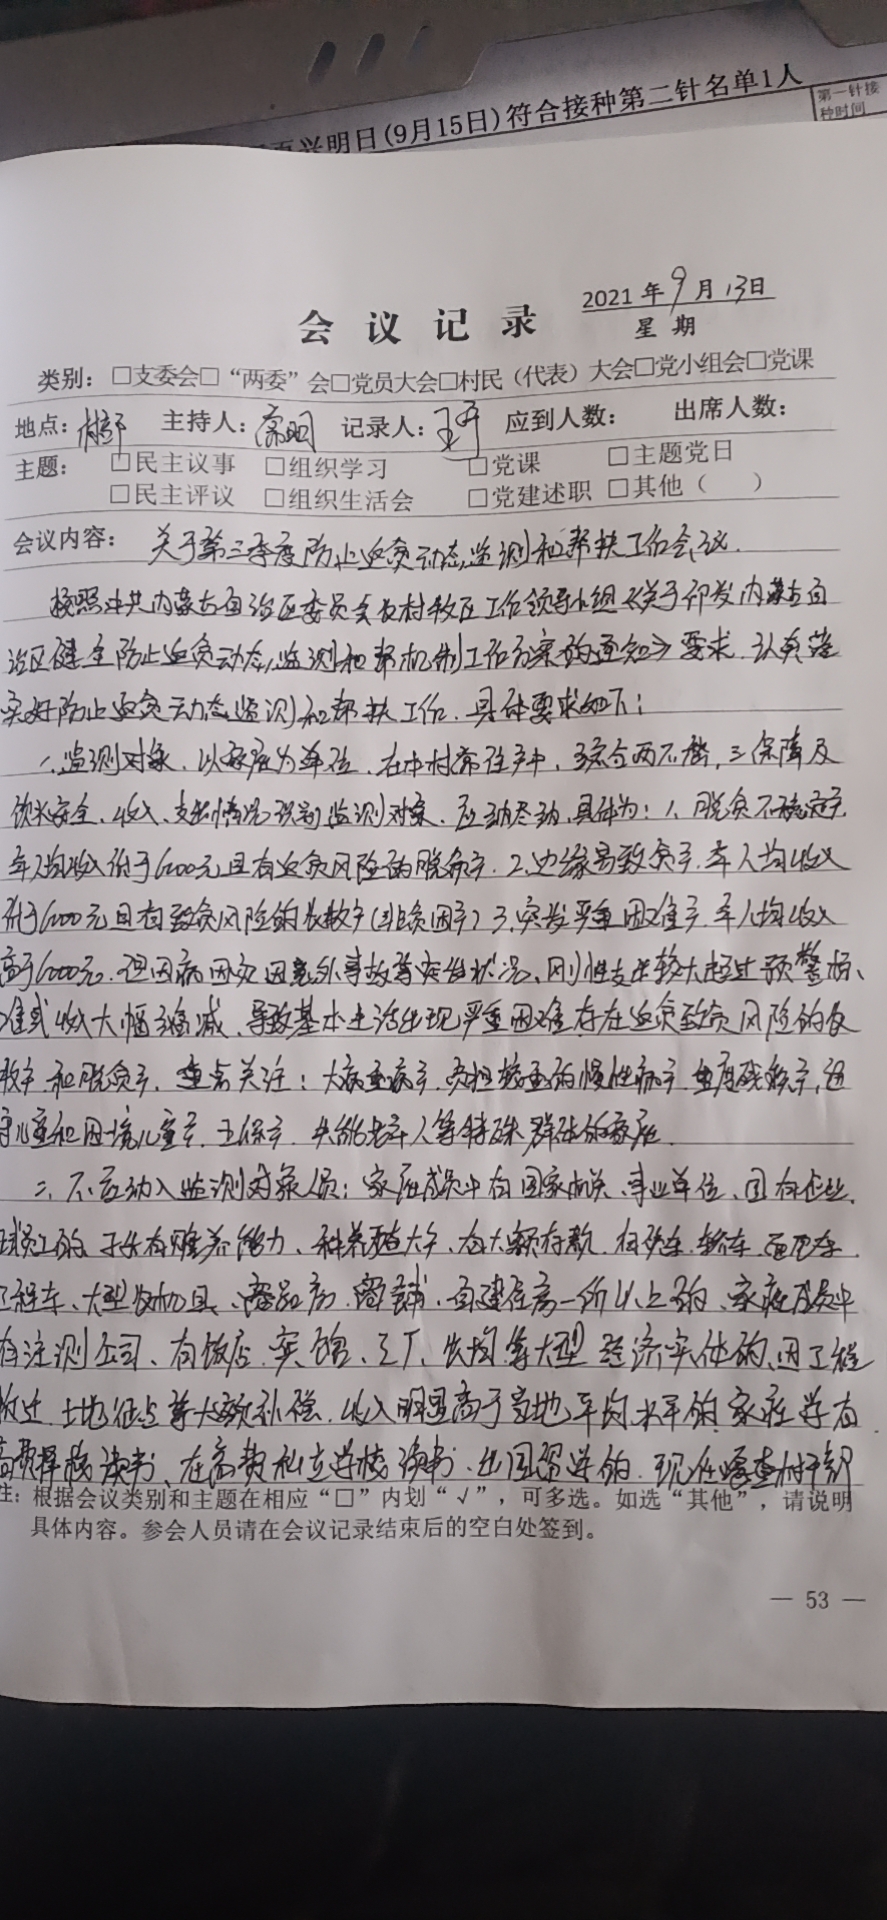 兴明日(9月15日)符合接种第二针名单1人
第一针接
种时间
2021年9月13日
会议记录
星期
类别：□支委会□“两委”会□党员大会□村民（代表）大会□党小组会□党课
地点：村部 主持人：高明 记录人：王 应到人数： 出席人数：
主题： □民主议事 □组织学习 □党课 □主题党日
□民主评议 □组织生活会 □党建述职 □其他（ ）
会议内容： 关于第三季度防止返贫动态监测和帮扶工作会议.
按照中共内蒙古自治区委员会农村牧区工作领导小组《关于印发内蒙古自
治区健全防止返贫动态监测和帮机制工作方案的通知》要求.认真落
实好防止返贫动态监测和帮扶工作.具体要求如下：
一、监测对象.以家庭为单位,在本村常住户中,综合两不愁,三保障及
饮水安全、收入、支出情况识别监测对象.应纳尽纳.具体为：1、脱贫不稳定户.
年人均收入低于6000元且有返贫风险的脱贫户.2.边缘易致贫户.年人均收入
低于6000元且有致贫风险的农牧户(非贫困户)3.突发严重困难户.年人均收入
高于6000元.但因病因灾因意外事故等突发状况、刚性支出较大超过预警标、
准或收入大幅缩减、导致基本生活出现严重困难存在返贫致贫风险的农
牧户和脱贫户.重点关注：大病重病户.负担较重的慢性病户.重度残疾户,留
守儿童和困境儿童户.五保户.失能老年人等特殊群体的家庭.
二、不应纳入监测对象人员：家庭成员中有国家机关、事业单位、国有企业.
职工的.子女有赡养能力、种养殖大户、有大额存款.有轿车.面包车.
工程车、大型农机具、商品房.商铺.自建住房一所以上的、家庭成员中
有注测公司、有饭店.宾馆、工厂、等大型经济实体的.因工程
拆迁.土地征占等大额补偿.收入明显高于当地平均水平的.家庭学有
高费择校读书、在高费私立学校读书.出国留学的.现任嘎查村干部
注：根据会议类别和主题在相应“□”内划“√”，可多选。如选“其他”，请说明
具体内容。参会人员请在会议记录结束后的空白处签到。
— 53 —